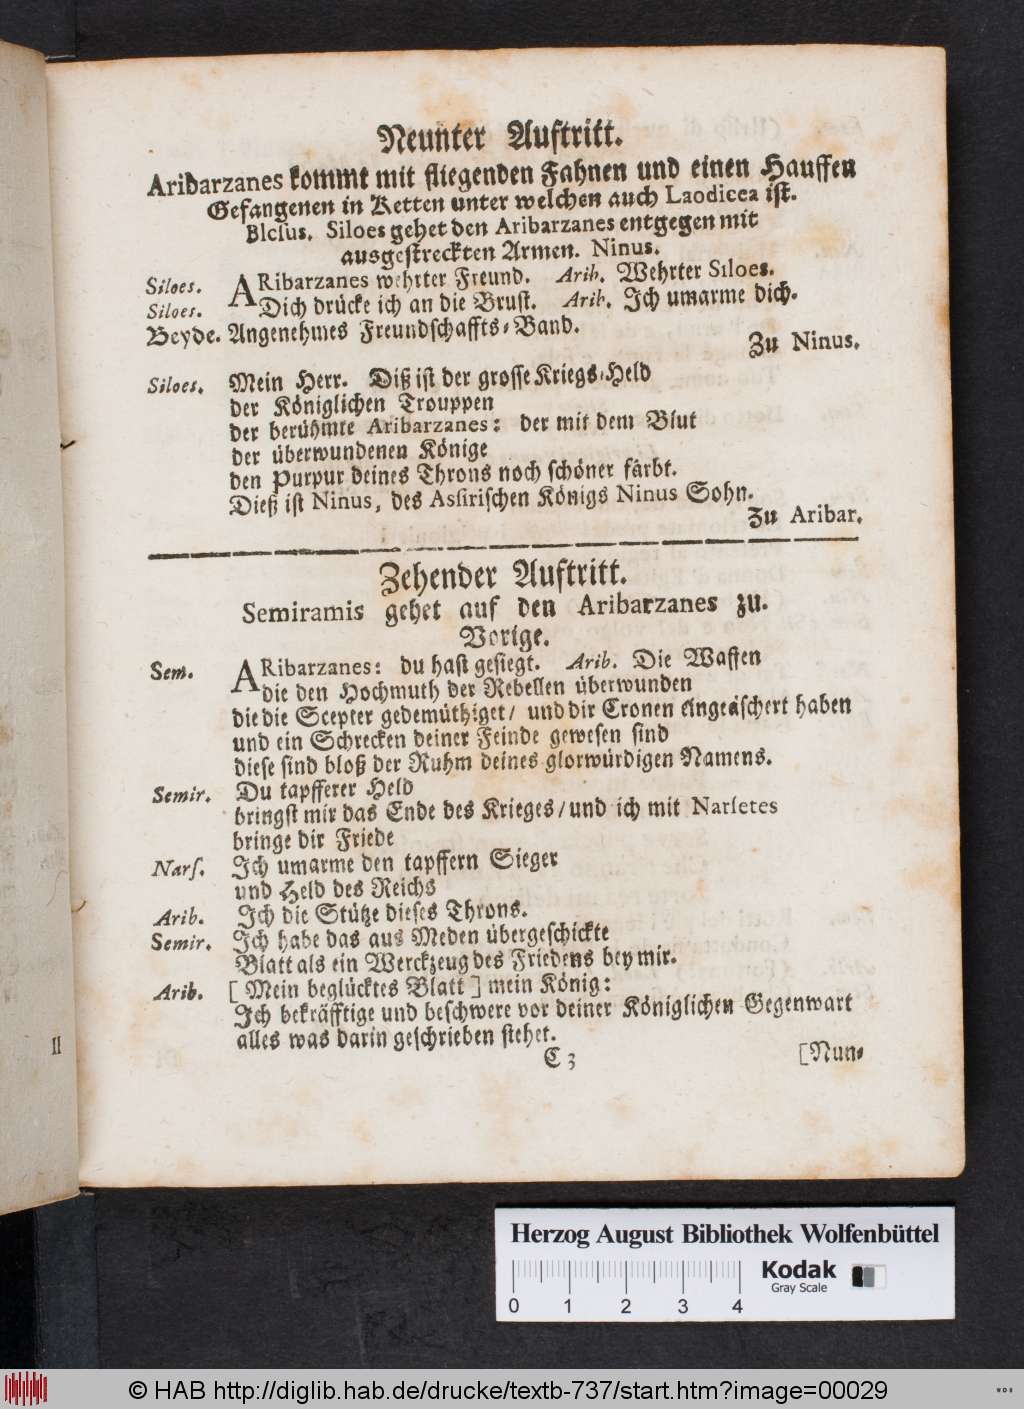 Neunter Auftritt.
Aribarzanes kommt mit fliegenden Fahnen und einen Hauffen
Gefangenen in Ketten unter welchen auch Laodicea ist.
Blesus. Siloes gehet den Aribarzanes entgegen mit
ausgestreckten Armen. Ninus.
Siloes. ARibarzanes wehrter Freund. Arib. Wehrter Siloes.
Siloes. Dich drücke ich an die Brust. Arib. Ich umarme dich.
Beyde. Angenehmes Freundschaffts-Band.
Zu Ninus.
Siloes. Mein Herr. Diß ist der grosse Kriegs-Held
der Königlichen Trouppen
der berühmte Aribarzanes: der mit dem Blut
der überwundenen Könige
den Purpur deines Throns noch schöner färbt.
Dieß ist Ninus, des Assirischen Königs Ninus Sohn.
Zu Aribar.
Zehender Auftritt.
Semiramis gehet auf den Aribarzanes zu.
Vorige.
Sem. ARibarzanes: du hast gesiegt. Arib. Die Waffen
die den Hochmuth der Rebellen überwunden
die die Scepter gedemüthiget/ und dir Cronen eingeäschert haben
und ein Schrecken deiner Feinde gewesen sind
diese sind bloß der Ruhm deines glorwürdigen Namens.
Semir. Du tapfferer Held
bringst mir das Ende des Krieges/ und ich mit Narsetes
bringe dir Friede
Nars. Ich umarme den tapffern Sieger
und Held des Reichs
Arib. Ich die Stütze dieses Throns.
Semir. Ich habe das aus Meden übergeschickte
Blatt als ein Werckzeug des Friedens bey mir.
Arib. [ Mein beglücktes Blatt ] mein König:
Ich bekräfftige und beschwere vor deiner Königlichen Gegenwart
alles was darin geschrieben stehet.
C 3 [Nun-
Herzog August Bibliothek Wolfenbüttel
Kodak
Gray Scale
0 1 2 3 4
© HAB http://diglib.hab.de/drucke/textb-737/start.htm?image=00029